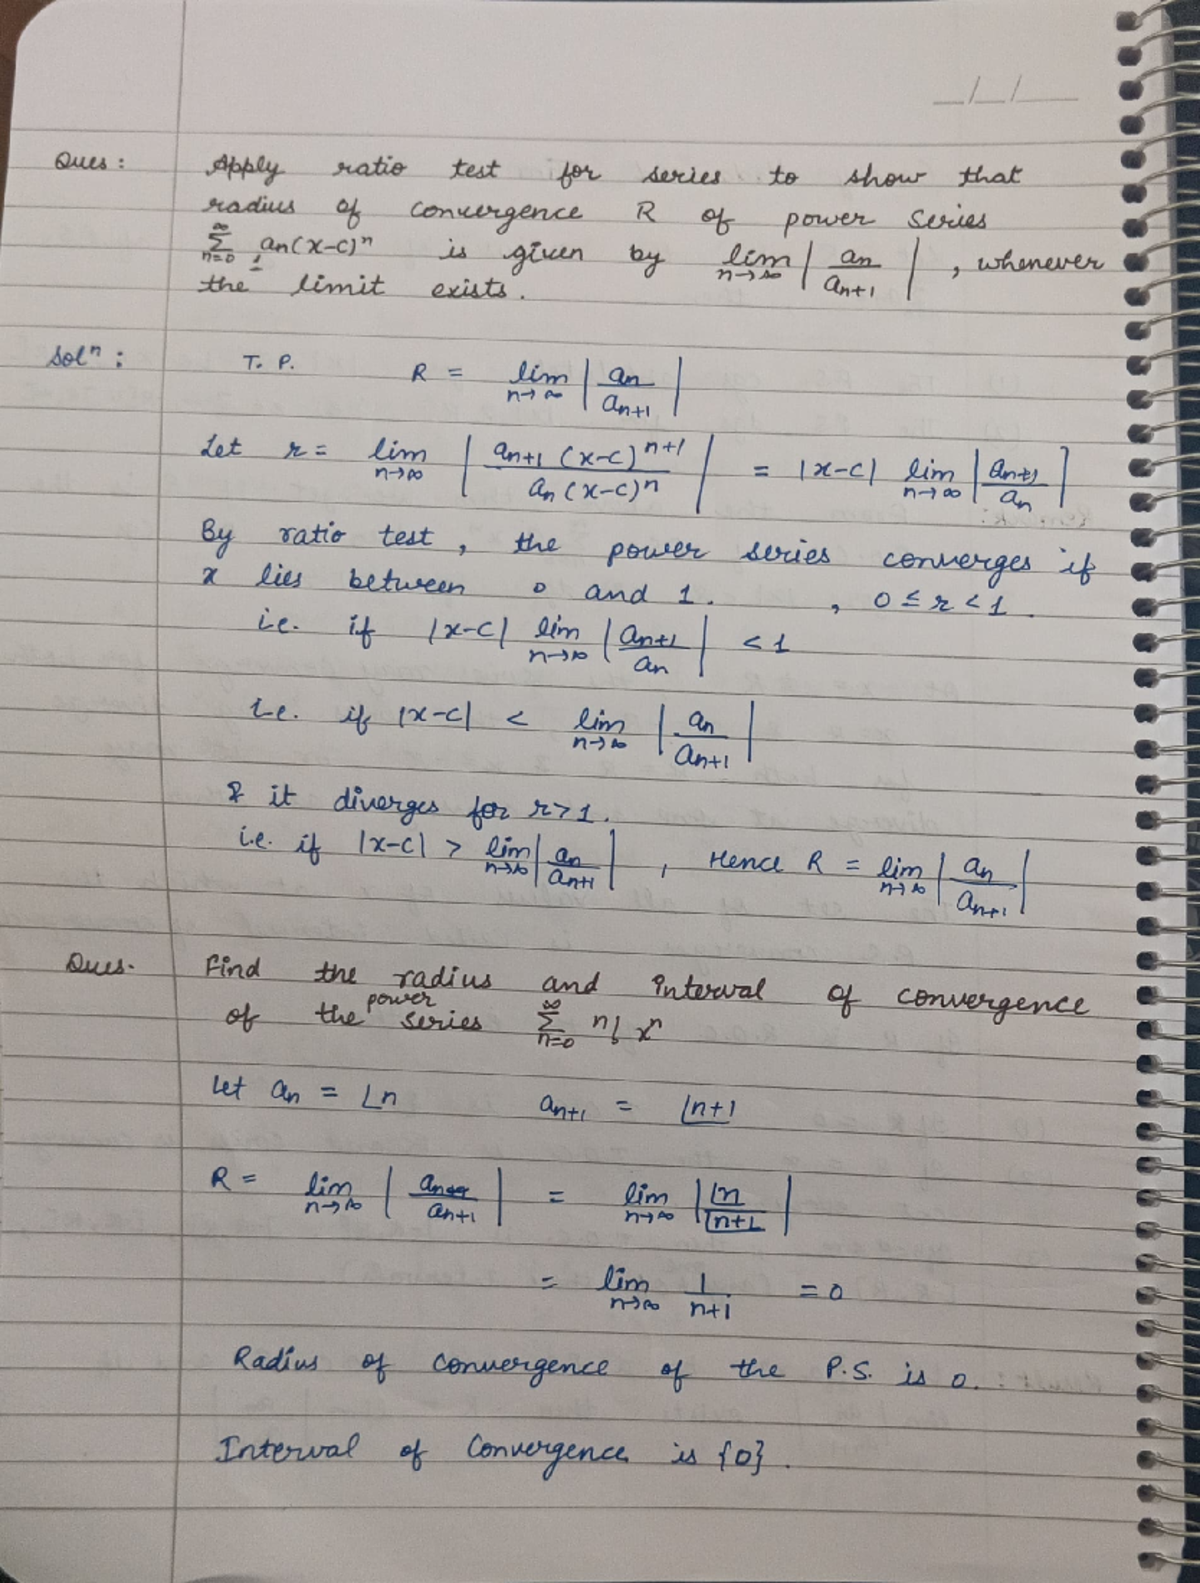 __/__/____
Ques: Apply ratio test for series to show that
radius of convergence R of power series
∑_{n=0}^{∞} an(x-c)^n is given by lim_{n→∞} | an / an+1 | , whenever
the limit exists.
Solⁿ: T. P. R = lim_{n→∞} | an / an+1 |
Let r = lim_{n→∞} | an+1 (x-c)^{n+1} / an (x-c)^n | = |x-c| lim_{n→∞} | an+1 / an |
By ratio test, the power series converges if
x lies between 0 and 1. , 0 ≤ r < 1.
i.e. if |x-c| lim_{n→∞} | an+1 / an | < 1
i.e. if |x-c| < lim_{n→∞} | an / an+1 |
& it diverges for r>1.
i.e. if |x-c| > lim_{n→∞} | an / an+1 | , Hence R = lim_{n→∞} | an / an+1 |
Ques. Find the radius and interval of convergence
of the power series ∑_{n=0}^{∞} n! x^n
Let an = ⌊n an+1 = ⌊n+1
R = lim_{n→∞} | an / an+1 | = lim_{n→∞} | ⌊n / ⌊n+1 |
= lim_{n→∞} 1 / n+1 = 0
Radius of convergence of the P.S. is 0.
Interval of Convergence is {0}.